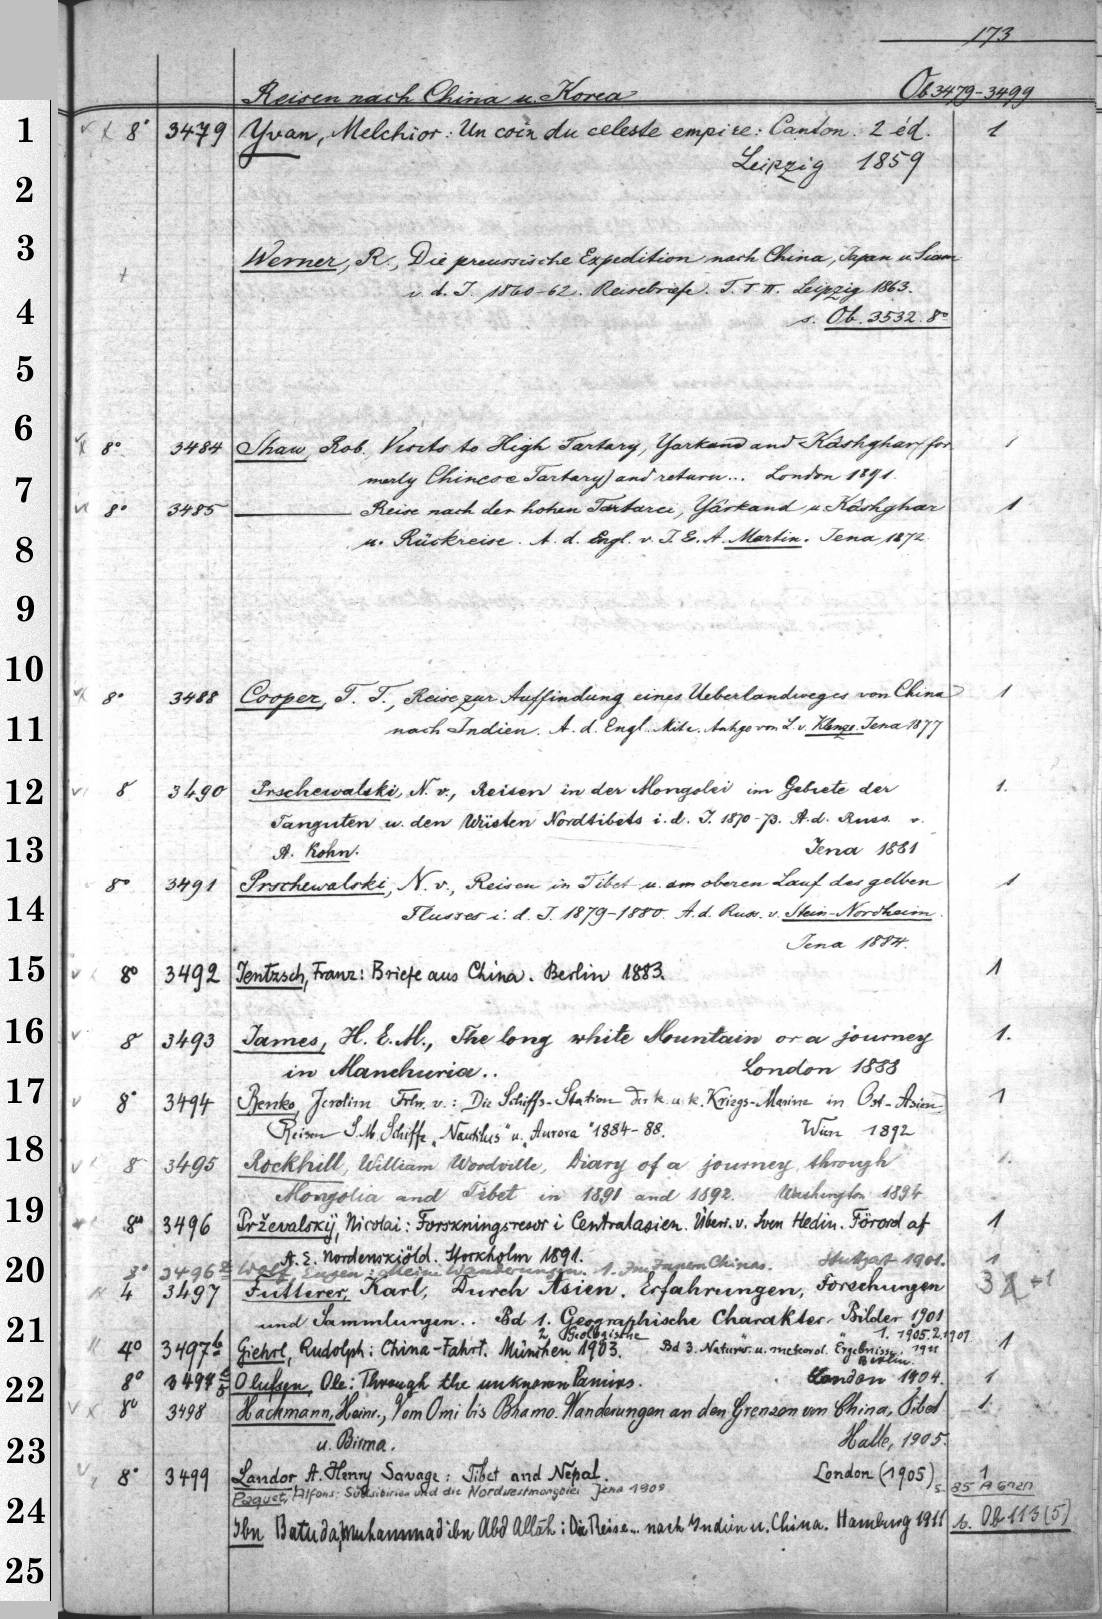 173
Reisen nach China u. Korea Ob 3479-3499
8° 3479 Yvan, Melchior: Un coin du celeste empire: Canton. 2 éd. 1
Leipzig 1859
Werner, R., Die preussische Expedition nach China, Japan u. Siam
i. d. J. 1860-62. Reisebriefe. T. I II. Leipzig 1863.
s. Ob. 3532. 8°
8° 3484 Shaw, Rob. Visits to High Tartary, Yarkand and Kâshghar (for 1
merly Chinese Tartary) and return... London 1891.
8° 3485 Reise nach der hohen Tartarei, Yârkand u. Kâshghar 1
u. Rückreise. A. d. Engl. v. J. E. A. Martin. Jena 1872
8° 3488 Cooper, T. T., Reise zur Auffindung eines Ueberlandweges von China 1
nach Indien. A. d. Engl. v. Klenze. Jena 1877
8 3490 Prschewalski, N. v., Reisen in der Mongolei im Gebiete der 1.
Tanguten u. den Wüsten Nordtibets i. d. J. 1870-73. A. d. Russ. v.
A. Kohn. Jena 1881
8° 3491 Prschewalski, N. v., Reisen in Tibet u. am oberen Lauf des gelben 1
Flusses i. d. J. 1879-1880. A. d. Russ. v. Stein-Nordheim.
Jena 1884.
8° 3492 Jentzsch, Franz: Briefe aus China. Berlin 1883. 1
8 3493 James, H. E. M., The long white Mountain or a journey 1.
in Manchuria.. London 1888
8° 3494 Benko, Jerolim Frhr. v.: Die Schiffs-Station der k. u. k. Kriegs-Marine in Ost-Asien 1
Reisen S. M. Schiffe „Nautilus" u. „Aurora" 1884-88. Wien 1892
8 3495 Rockhill, William Woodville, Diary of a journey through 1.
Mongolia and Tibet in 1891 and 1892. Washington 1894
8° 3496 Prževalskij, Nicolai: Forskningsresor i Centralasien. Übers. v. Sven Hedin. Förord af 1
A. E. Nordenskiöld. Stockholm 1891.
8° 3496 Wolf, Eugen: Meine Wanderungen. 1. Im Innern Chinas. Stuttgart 1901. 1
4 3497 Futterer, Karl, Durch Asien. Erfahrungen, Forschungen 3
und Sammlungen.. Bd 1. Geographische Charakter-Bilder 1901
2. Geologische 1. 1905. 2. 1909
4° 3497b Giehrl, Rudolph: China-Fahrt. München 1903. Bd 3. Naturw. u. meteorol. Ergebnisse 1911 1
Berlin.
8° 3497 Olufsen, Ole: Through the unknown Pamirs. London 1904. 1
8° 3498 Hackmann, Heinr., Vom Omi bis Bhamo. Wanderungen an den Grenzen von China, Tibet 1
u. Birma. Halle, 1905.
8° 3499 Landor, A. Henry Savage: Tibet and Nepal. London (1905) 1
Paquet, Alfons: Südsibirien und die Nordwestmongolei Jena 1909 s. 85 A 6727
Ibn Batuda, Muhammad ibn Abd Allāh: Die Reise... nach Indien u. China. Hamburg 1911 s. Ob 113 (5)
1
2
3
4
5
6
7
8
9
10
11
12
13
14
15
16
17
18
19
20
21
22
23
24
25